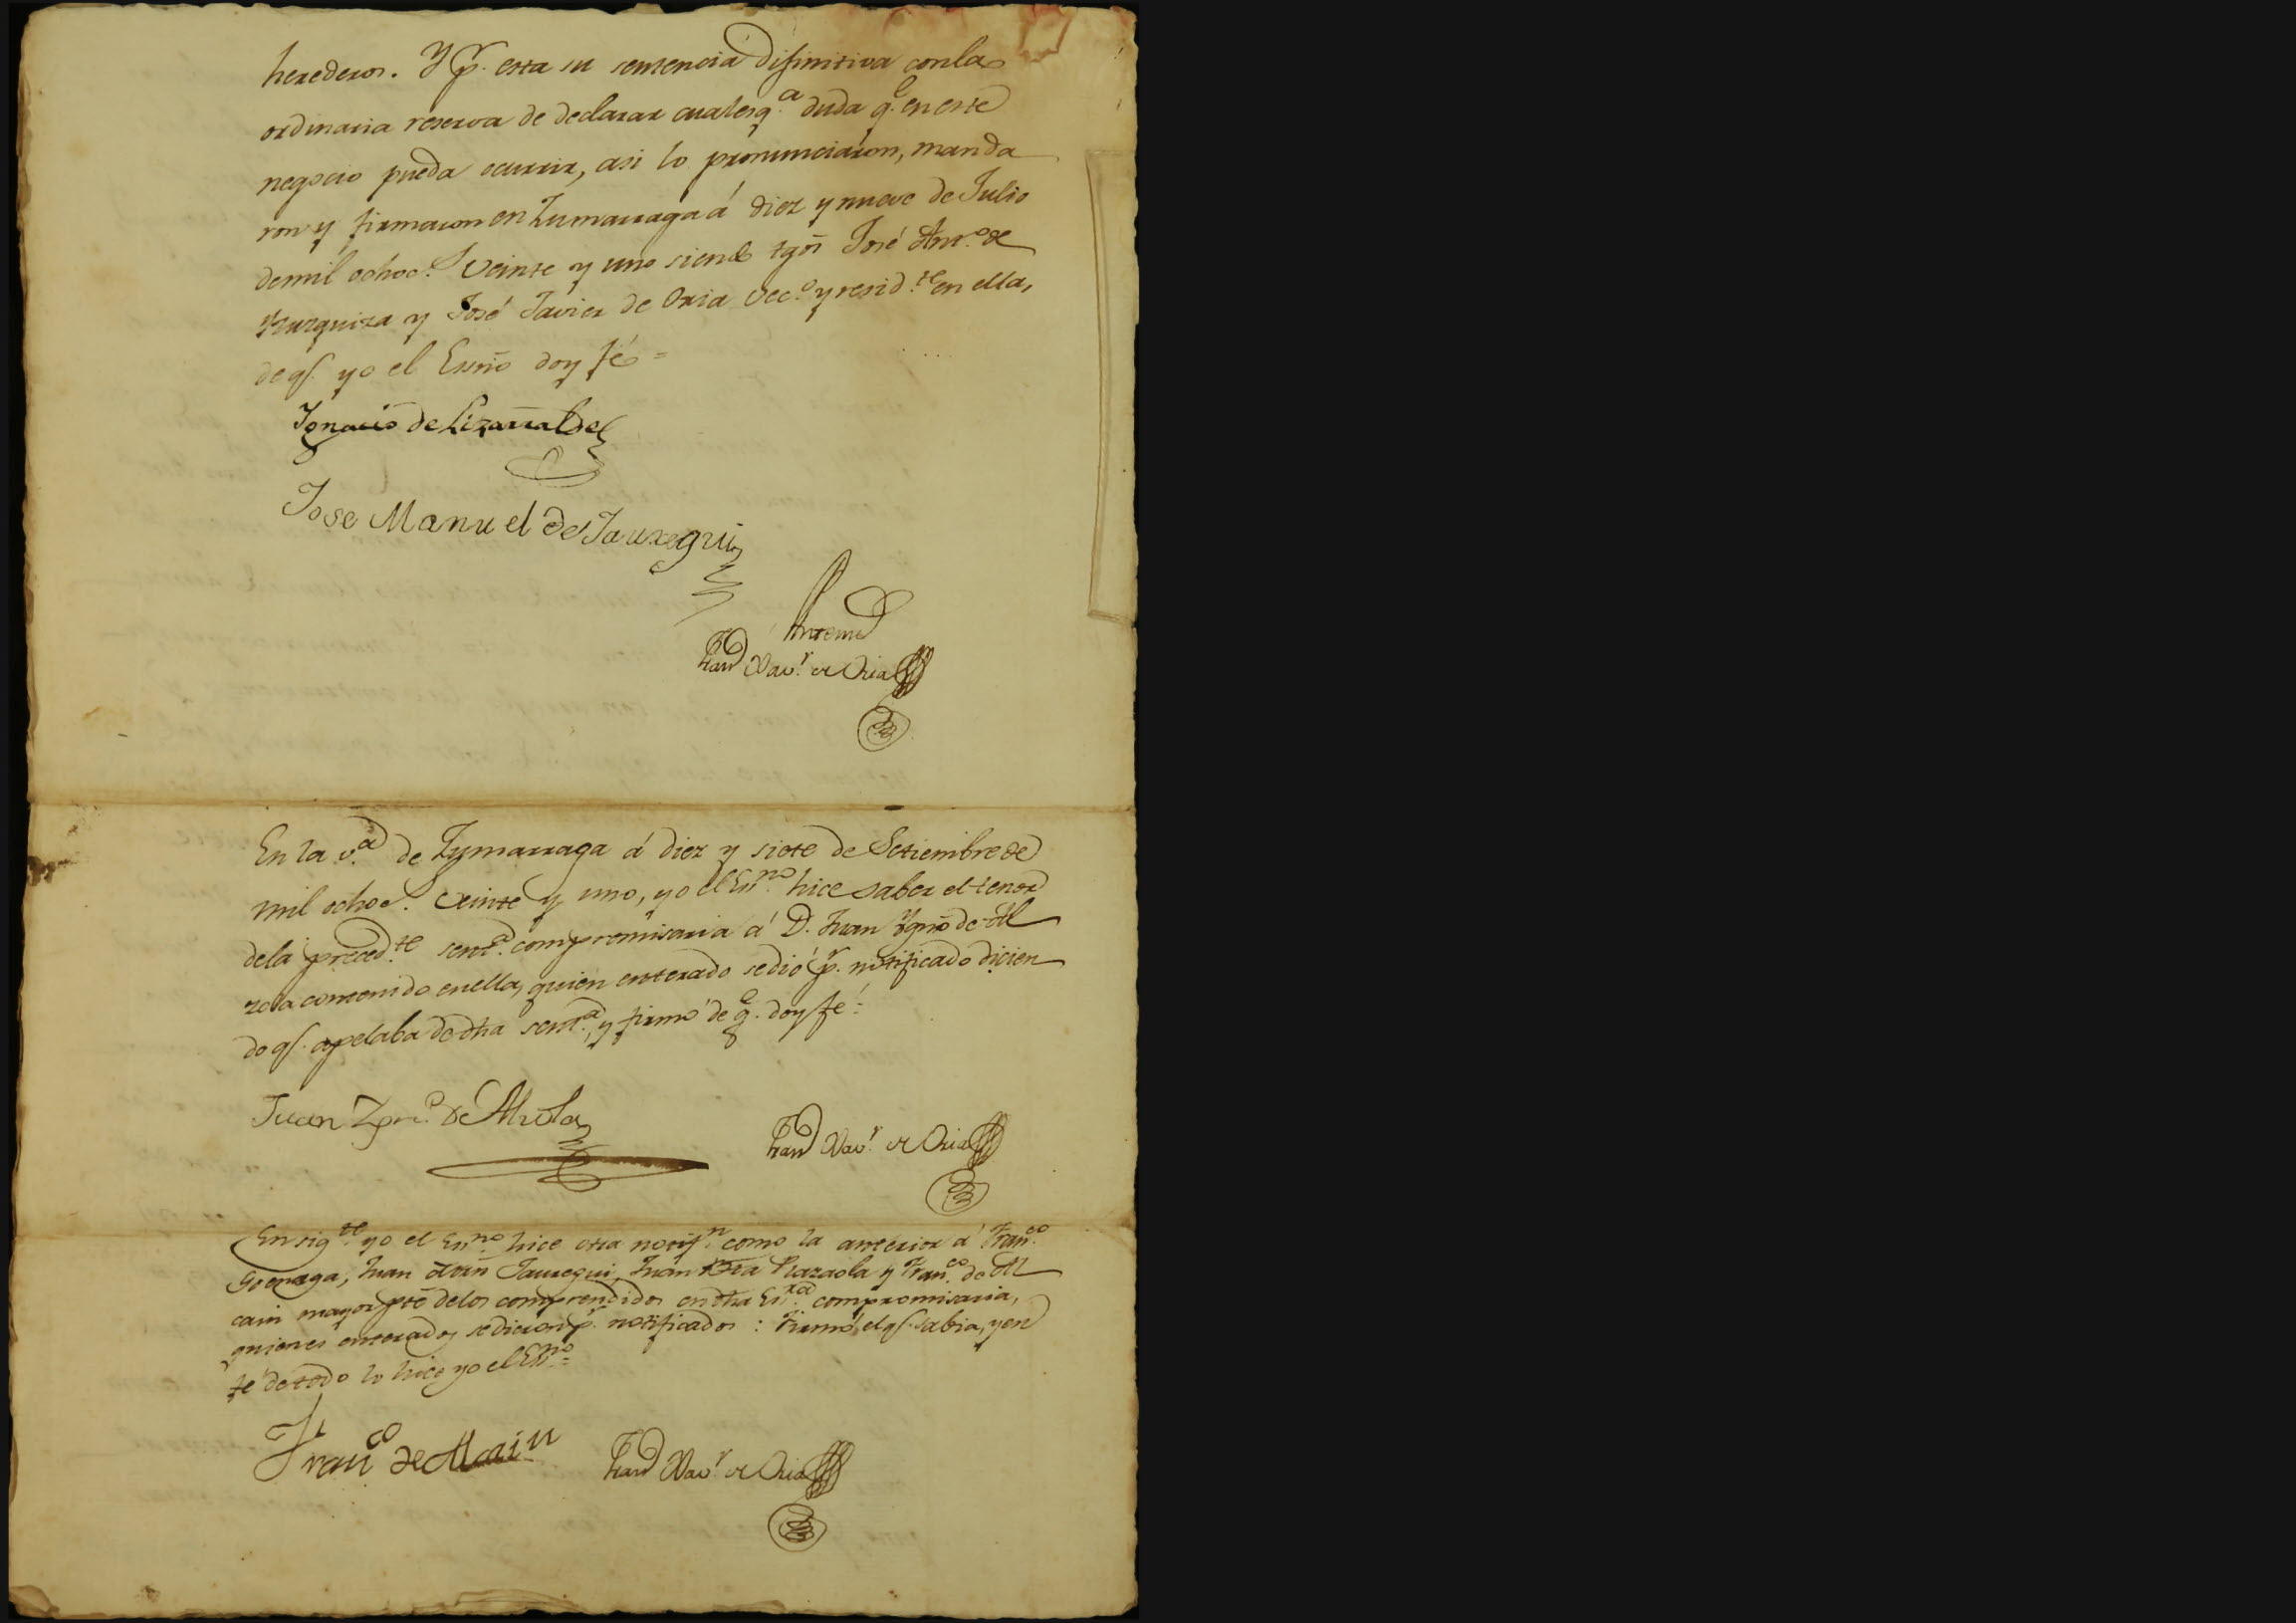 herederos. Y p.r esta su sentencia difinitiva con la
ordinaria reserva de declarar cualesq.a duda q.e en este
negocio pueda ocurrir, asi lo pronunciaron, manda
ron y firmaron en Zumarraga á diez y nueve de Julio
de mil ochoc.s veinte y uno siendo tgõs José Ant.o de
Yzurquiza y José Javier de Oria vec.o y resid.te en ella,
de q.e yo el Essño doy fé =
Ygnacio de Lizarralde
Jose Manuel de Jauregui
Antemi
Fran Xav.r de Oria
En la v.a de Zumarraga á diez y siete de Setiembre de
mil ochoc.s veinte y uno, yo el Ess.no hice saber el tenor
de la preced.te sent.a compromisaria á D. Juan Ygnõ de Al
zola contenido en ella, quien enterado se dió p.r notificado dicien
do q.e apelaba de dha sent.a, y firmó de q.e doy fe =
Juan Ygn.o de Alzola
Fran Xav.r de Oria
En sig.te yo el Ess.no hice otra notif.n como la anterior á Fran.co
Goenaga, Juan Jauregui, Juan Bta y Fran.co de Al
cain mayor pte de los comprendidos en dha Ess.ra compromisaria,
quienes enterados se dieron p.r notificados : Firmó el q.e sabia, y en
fé de todo lo hice yo el Ess.no =
Fran.co de Alcain
Fran Xav.r de Oria